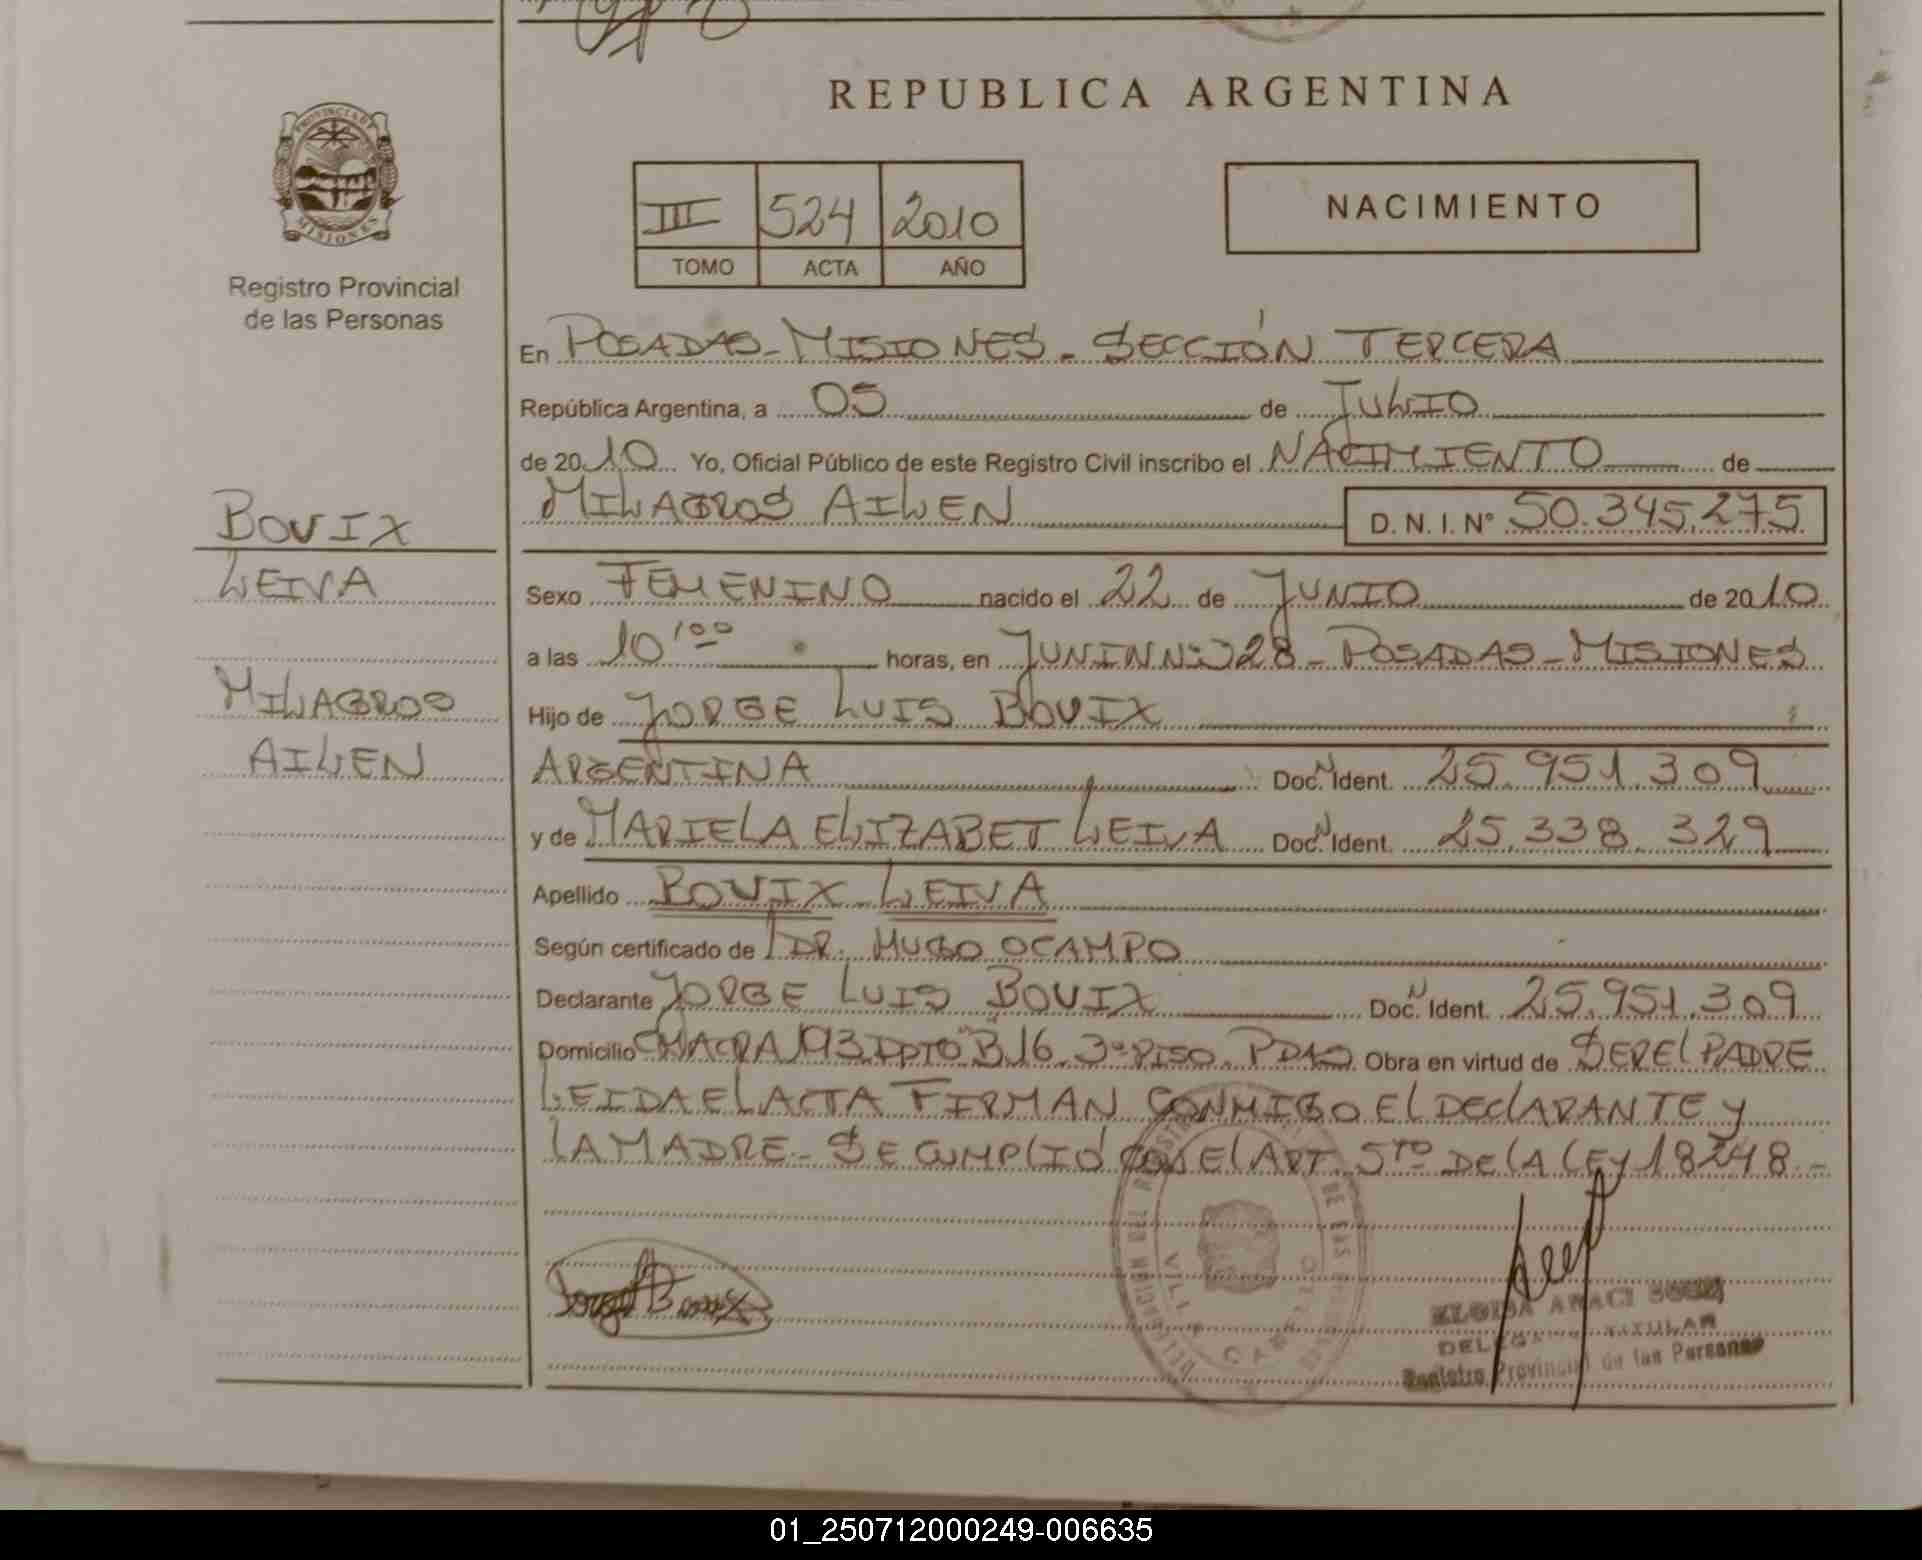 REPUBLICA ARGENTINA
PROVINCIA DE
MISIONES
Registro Provincial
de las Personas
III 524 2010
TOMO ACTA AÑO
NACIMIENTO
En POSADAS-MISIONES. SECCIÓN TERCERA
República Argentina, a 05 de JULIO
de 2010 Yo, Oficial Público de este Registro Civil inscribo el NACIMIENTO de
MILAGROS AILEN D. N. I. N° 50.345.275
BOVIX
LEIVA
MILAGROS
AILEN
Sexo FEMENINO nacido el 22 de JUNIO de 2010
a las 10'00 horas, en JUNIN Nº 328 - POSADAS - MISIONES
Hijo de JORGE LUIS BOVIX
ARGENTINA Doc. Ident. 25.951.309
y de MARIELA ELIZABET LEIVA Doc. Ident. 25.338.329
Apellido BOVIX LEIVA
Según certificado de DR. HUGO OCAMPO
Declarante JORGE LUIS BOVIX Doc. Ident. 25.951.309
Domicilio CHACRA 193 DPTO B 16. 3º PISO. PDAS Obra en virtud de SER EL PADRE
LEIDA EL ACTA FIRMAN CONMIGO EL DECLARANTE y
LA MADRE - SE CUMPLIÓ CON EL ART. 5TO DE LA LEY 18248.-
DELEGACION DEL REGISTRO DE LAS
VILLA CABELLO
DELEGADA TITULAR
Registro Provincial de las Personas
01_250712000249-006635